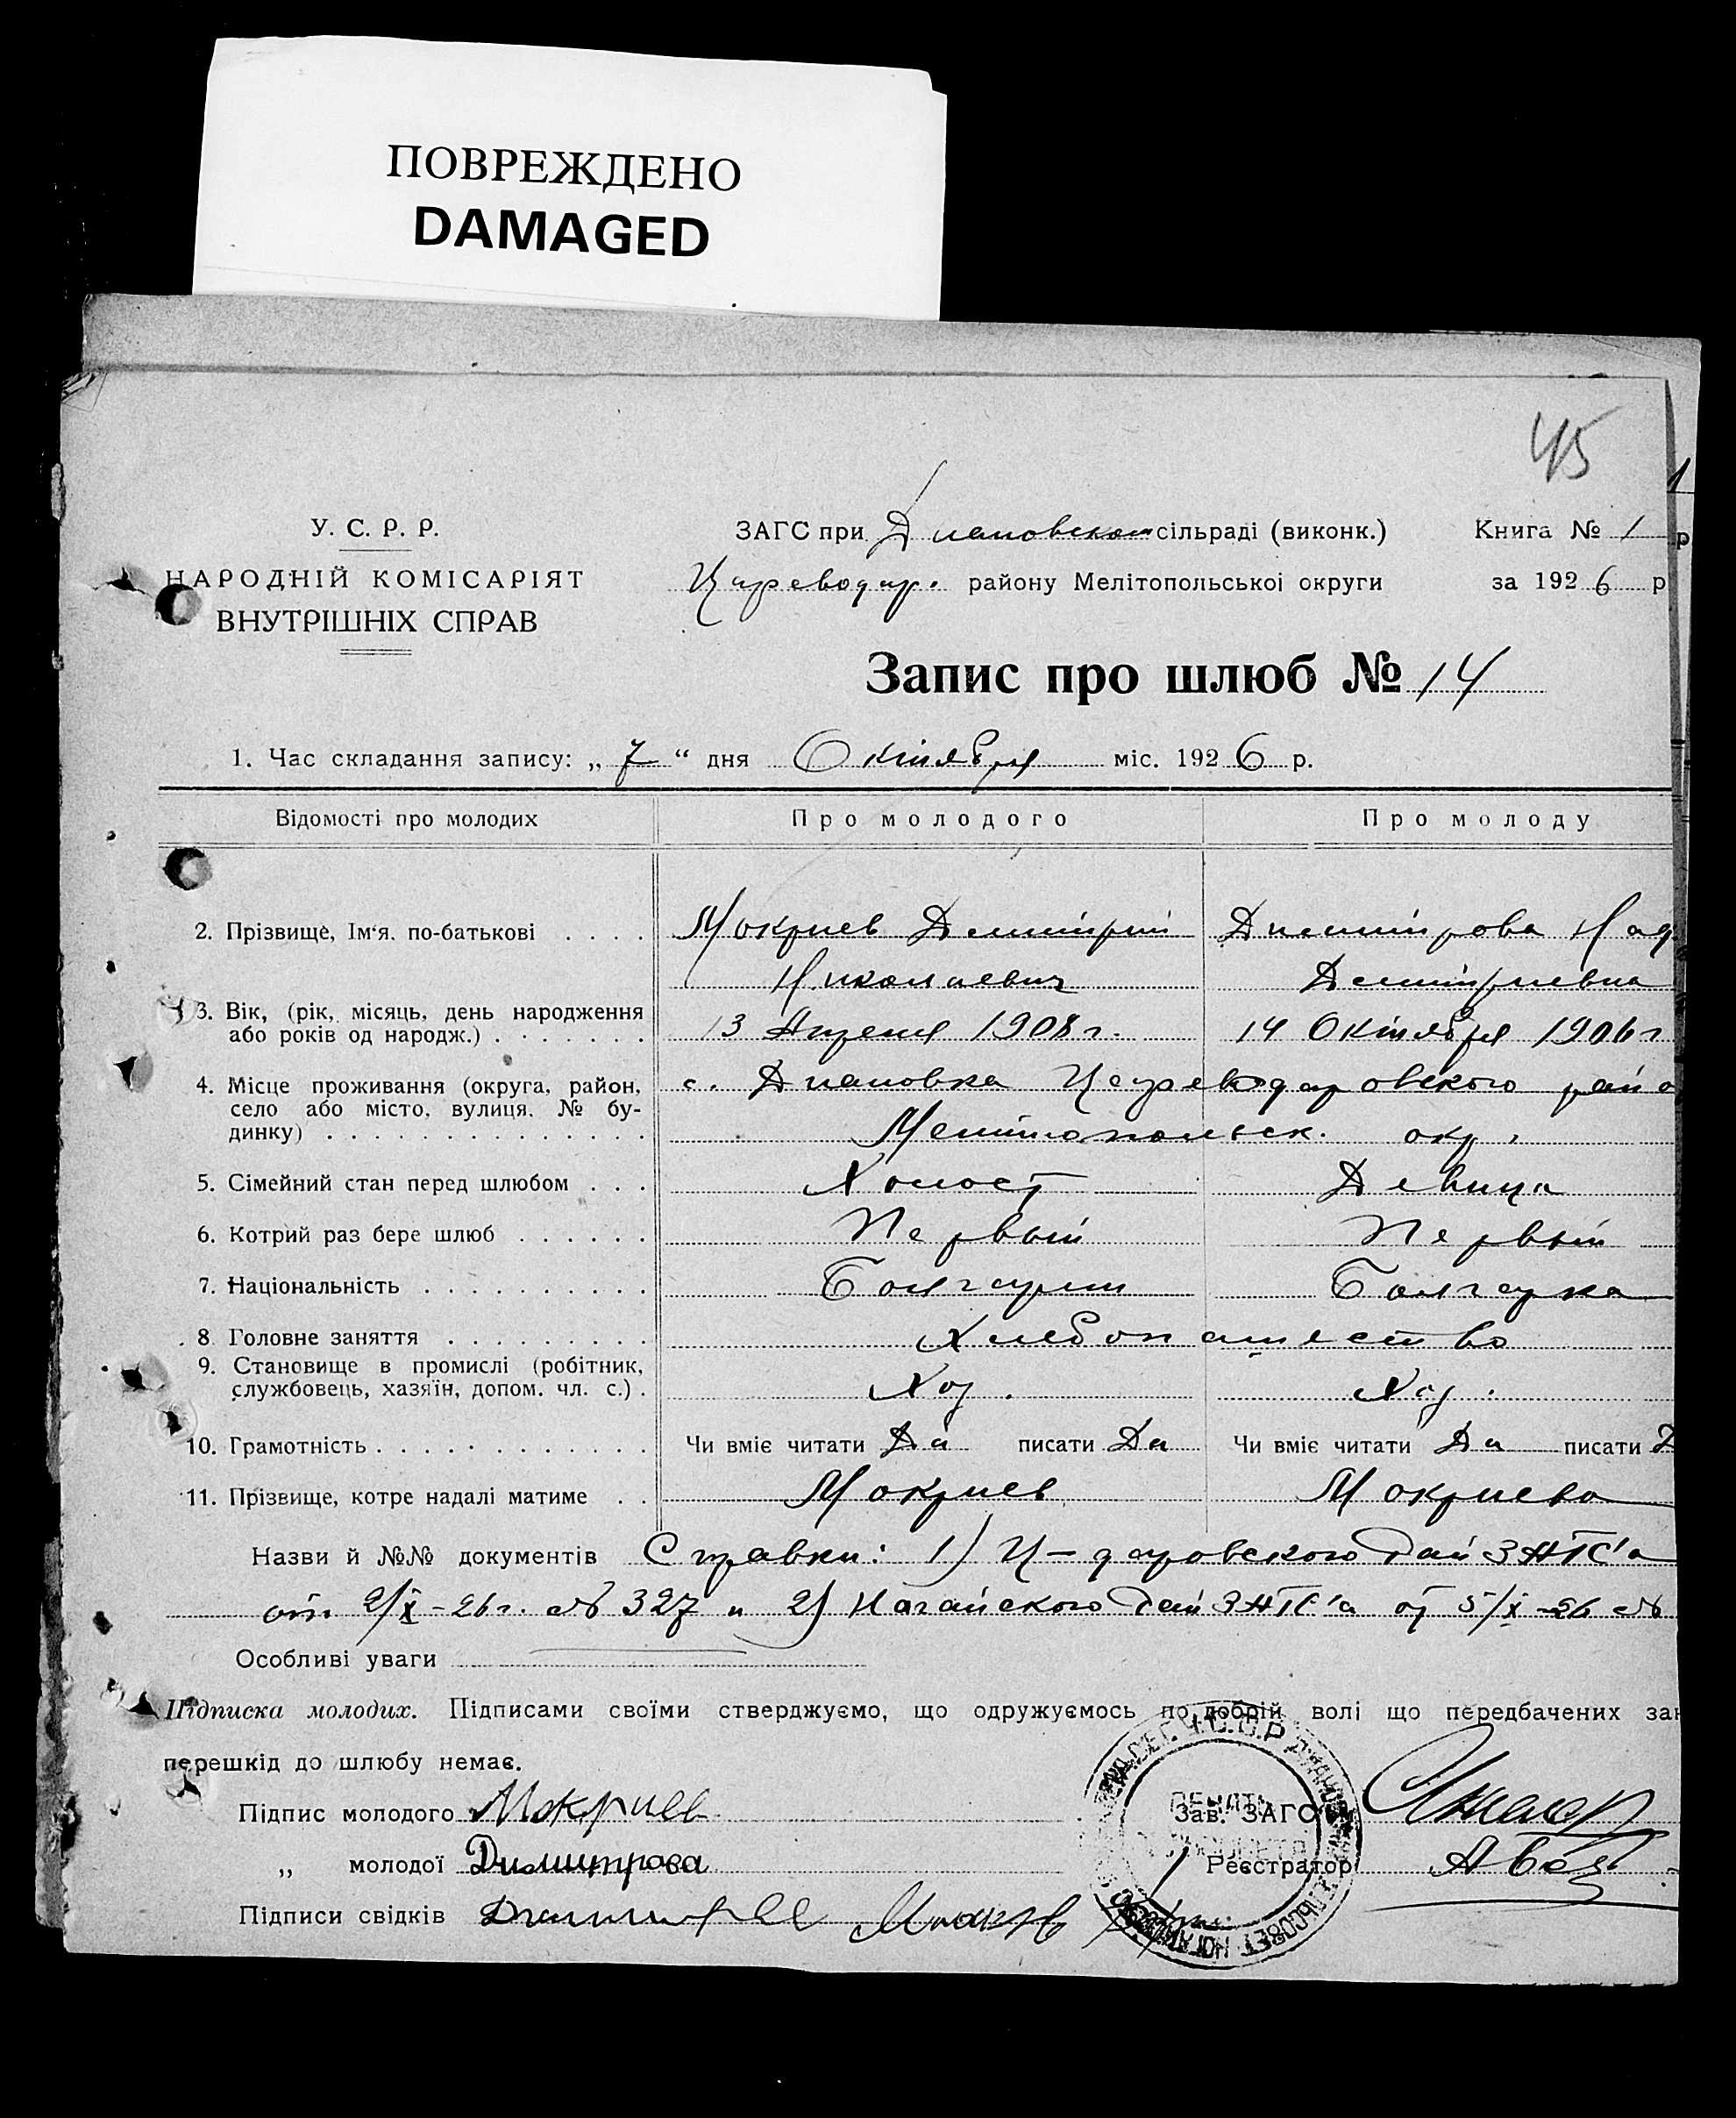 ПОВРЕЖДЕНО
DAMAGED
45
У. С. Р. Р.
НАРОДНІЙ КОМІСАРІЯТ
ВНУТРІШНІХ СПРАВ
ЗАГС при Диановском сільраді (виконк.) Книга № 1
Цареводар. району Мелітопольської округи за 1926 р
Запис про шлюб № 14
1. Час складання запису: „ 7 “ дня Октября міс. 1926 р.
Відомості про молодих Про молодого Про молоду
2. Прізвище, Ім'я, по-батькові . . . . Мокриев Дмитрий Димитрова Над
Николаевич Дмитриевна
3. Вік, (рік, місяць, день народження
або років од народж.) . . . . . . . 13 Апреля 1908 г. 14 Октября 1906 г
4. Місце проживання (округа, район, с. Диановка Цареводаровского райо
село або місто, вулиця, № бу-
динку) . . . . . . . . . . . . . . Мелитопольск. окр.
5. Сімейний стан перед шлюбом . . . Холост Девица
6. Котрий раз бере шлюб . . . . . . Первый Первый
7. Національність . . . . . . . . . . Болгарин Болгарка
8 Головне заняття . . . . . . . . . Хлебопашество
9. Становище в промислі (робітник,
службовець, хазяїн, допом. чл. с.) . Хоз. Хоз.
10. Грамотність . . . . . . . . . . . . Чи вміє читати Да писати Да Чи вміє читати Да писати Д
11. Прізвище, котре надалі матиме . . Мокриев Мокриева
Назви й №№ документів Справки: 1) Ц-даровского Рай ЗАГС'а
от 2/X-26 г. № 327 и 2) Ногайского Рай ЗАГС'а от 5/X-26 №
Особливі уваги
Підписка молодих. Підписами своїми стверджуємо, що одружуємось по добрій волі що передбачених зак
перешкід до шлюбу немає.
Підпис молодого Мокриев Зав. ЗАГСу
„ молодої Димитрова Реєстратор
Підписи свідків
У.С.С.Р.
ПЕЧАТЬ